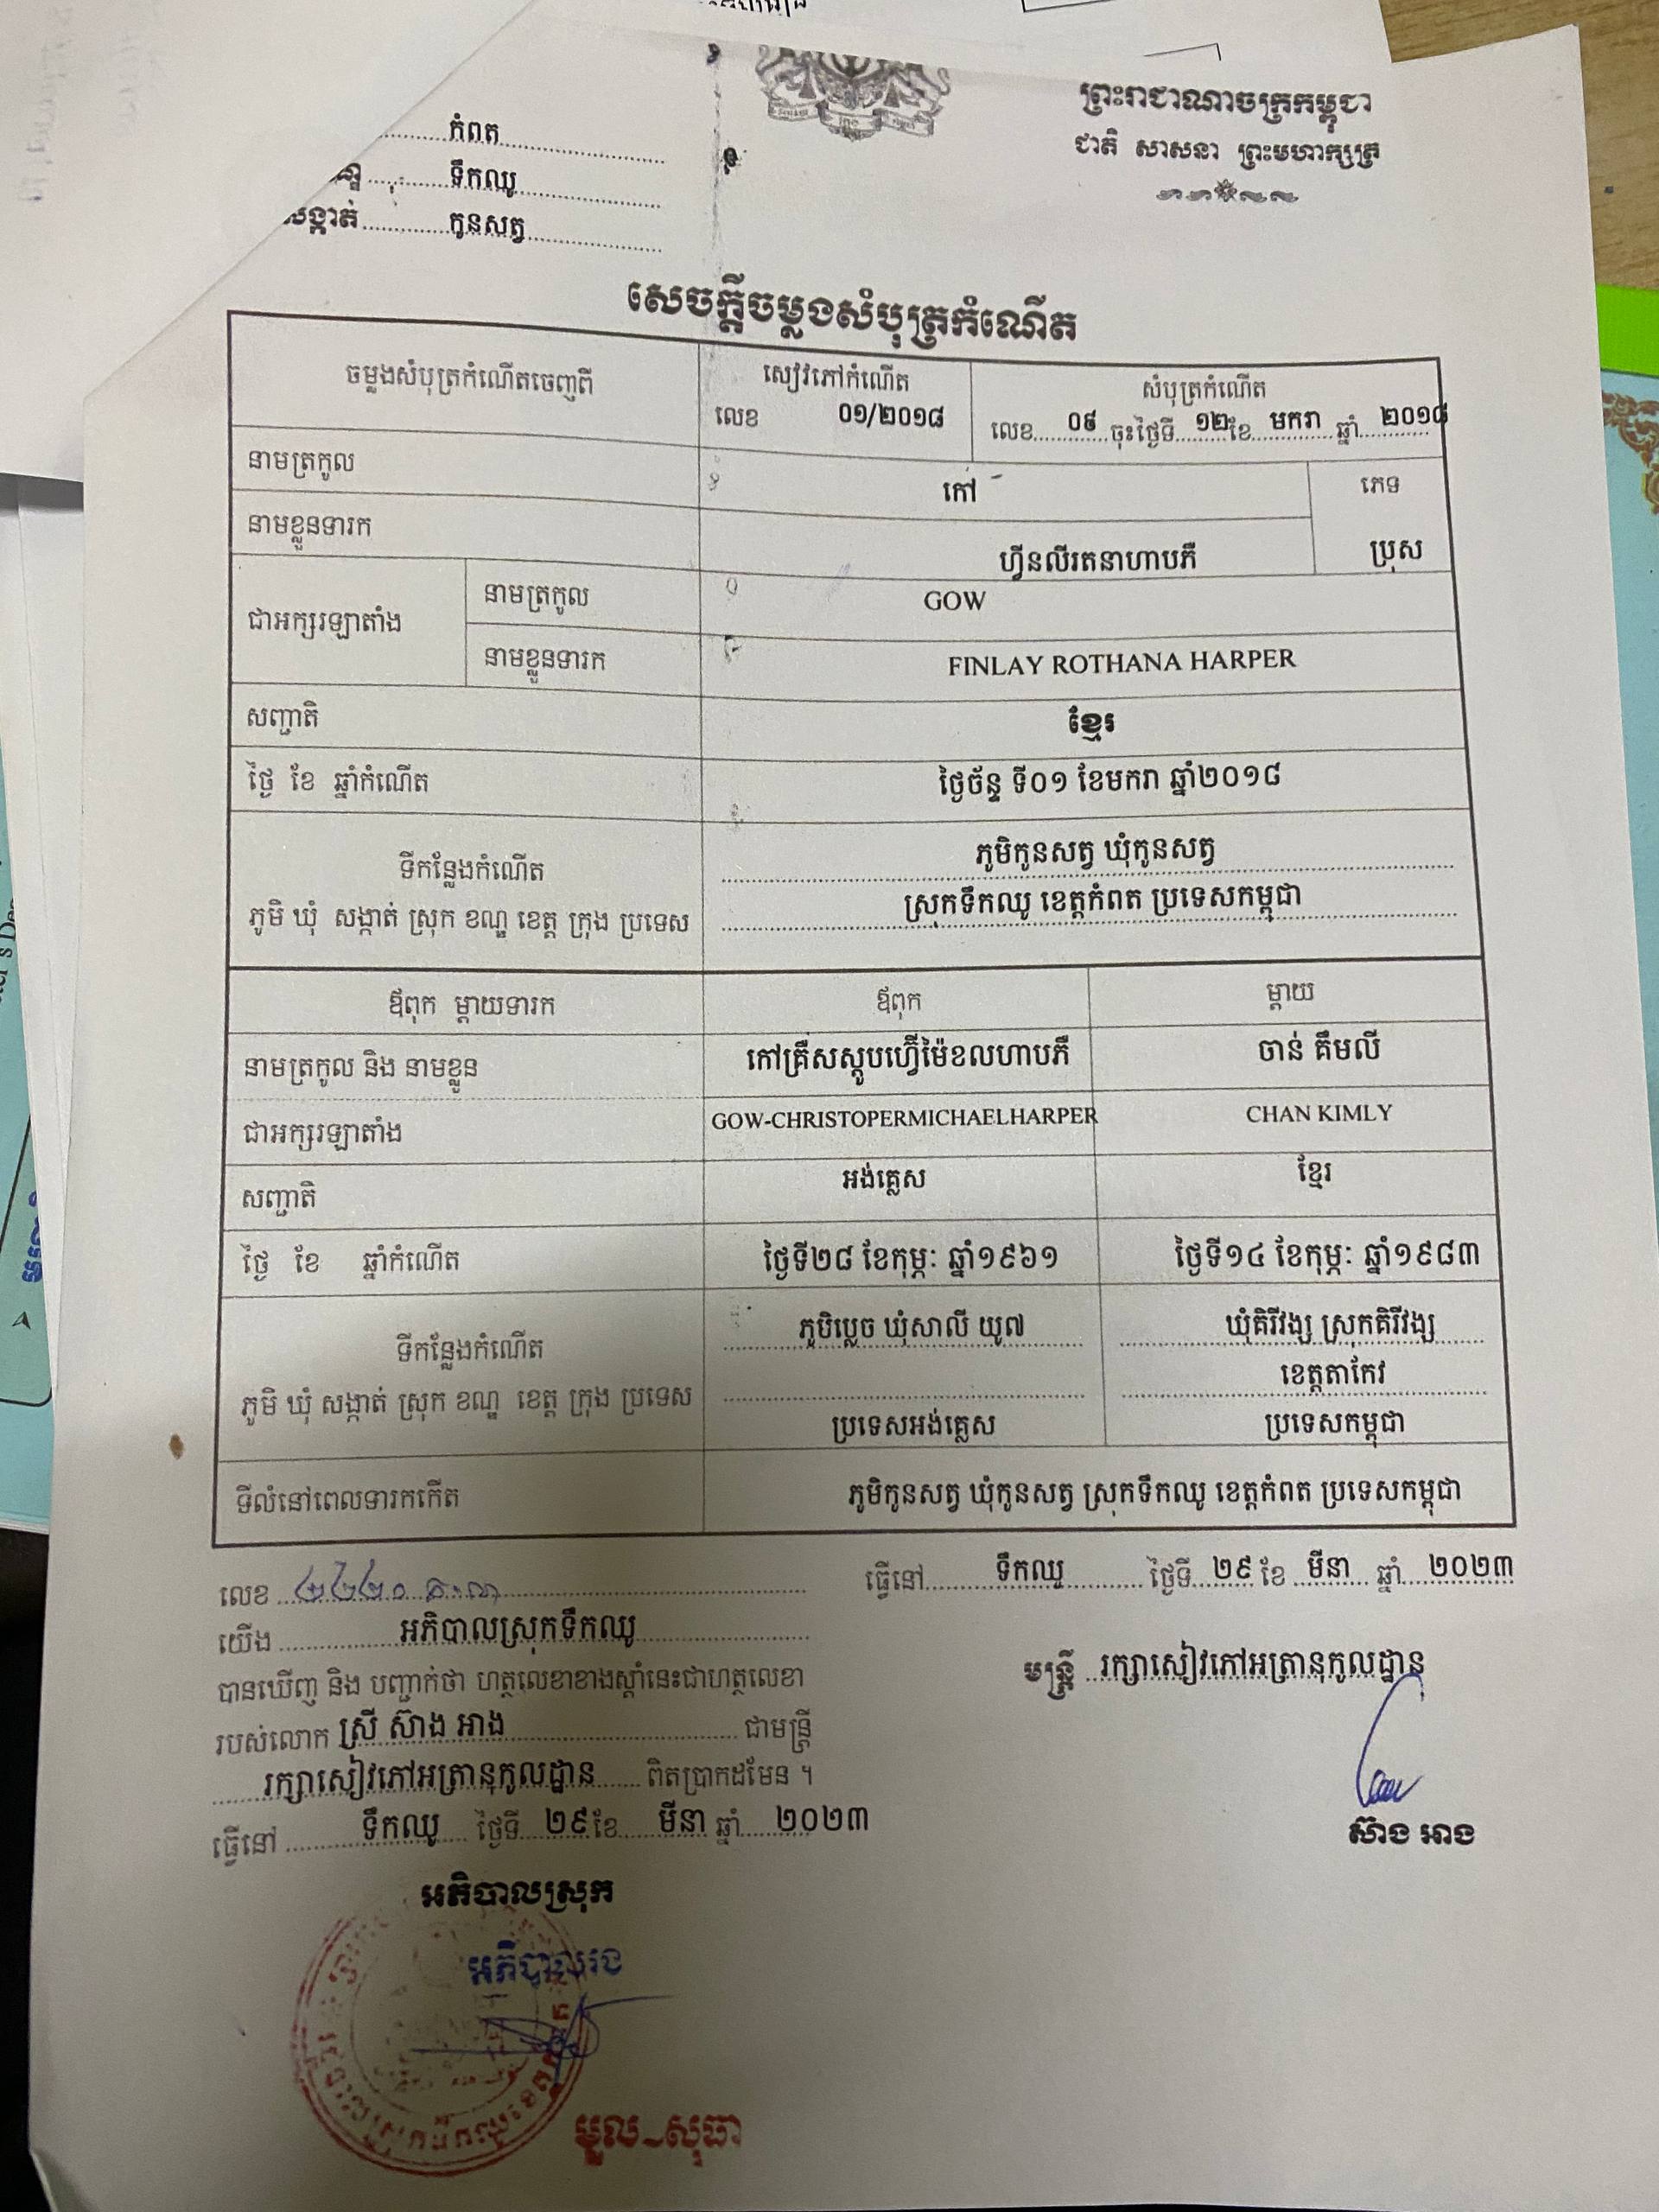 ព្រះរាជាណាចក្រកម្ពុជា
ជាតិ សាសនា ព្រះមហាក្សត្រ
កំពត
ទឹកឈូ
សង្កាត់ កូនសត្វ
សេចក្ដីចម្លងសំបុត្រកំណើត
ចម្លងសំបុត្រកំណើតចេញពី
សៀវភៅកំណើត
លេខ ០១/២០១៨
សំបុត្រកំណើត
លេខ ០៩ ចុះថ្ងៃទី ១២ ខែ មករា ឆ្នាំ ២០១៨
នាមត្រកូល កៅ
ភេទ
នាមខ្លួនទារក ហ្វីនលីរតនាហាបភឺ ប្រុស
ជាអក្សរឡាតាំង
នាមត្រកូល GOW
នាមខ្លួនទារក FINLAY ROTHANA HARPER
សញ្ជាតិ ខ្មែរ
ថ្ងៃ ខែ ឆ្នាំកំណើត ថ្ងៃច័ន្ទ ទី០១ ខែមករា ឆ្នាំ២០១៨
ទីកន្លែងកំណើត
ភូមិ ឃុំ សង្កាត់ ស្រុក ខណ្ឌ ខេត្ត ក្រុង ប្រទេស
ភូមិកូនសត្វ ឃុំកូនសត្វ
ស្រុកទឹកឈូ ខេត្តកំពត ប្រទេសកម្ពុជា
ឪពុក ម្ដាយទារក ឪពុក ម្ដាយ
នាមត្រកូល និង នាមខ្លួន កៅគ្រឺសស្តូបហ្វើម៉ៃខលហាបភឺ ចាន់ គឹមលី
ជាអក្សរឡាតាំង GOW-CHRISTOPERMICHAELHARPER CHAN KIMLY
សញ្ជាតិ អង់គ្លេស ខ្មែរ
ថ្ងៃ ខែ ឆ្នាំកំណើត ថ្ងៃទី២៨ ខែកុម្ភៈ ឆ្នាំ១៩៦១ ថ្ងៃទី១៤ ខែកុម្ភៈ ឆ្នាំ១៩៨៣
ទីកន្លែងកំណើត
ភូមិ ឃុំ សង្កាត់ ស្រុក ខណ្ឌ ខេត្ត ក្រុង ប្រទេស
ភូមិប្លេច ឃុំសាលី យូ៧
ប្រទេសអង់គ្លេស
ឃុំគិរីវង្ស ស្រុកគិរីវង្ស
ខេត្តតាកែវ
ប្រទេសកម្ពុជា
ទីលំនៅពេលទារកកើត ភូមិកូនសត្វ ឃុំកូនសត្វ ស្រុកទឹកឈូ ខេត្តកំពត ប្រទេសកម្ពុជា
លេខ
យើង អភិបាលស្រុកទឹកឈូ
បានឃើញ និង បញ្ជាក់ថា ហត្ថលេខាខាងស្ដាំនេះជាហត្ថលេខា
របស់លោក ស្រី ស៊ាង អាង ជាមន្ត្រី
រក្សាសៀវភៅអត្រានុកូលដ្ឋាន ពិតប្រាកដមែន ។
ធ្វើនៅ ទឹកឈូ ថ្ងៃទី ២៩ ខែ មីនា ឆ្នាំ ២០២៣
អភិបាលស្រុក
អភិបាលរង
មួល-សុធា
ធ្វើនៅ ទឹកឈូ ថ្ងៃទី ២៩ ខែ មីនា ឆ្នាំ ២០២៣
មន្ត្រី រក្សាសៀវភៅអត្រានុកូលដ្ឋាន
ស៊ាង អាង